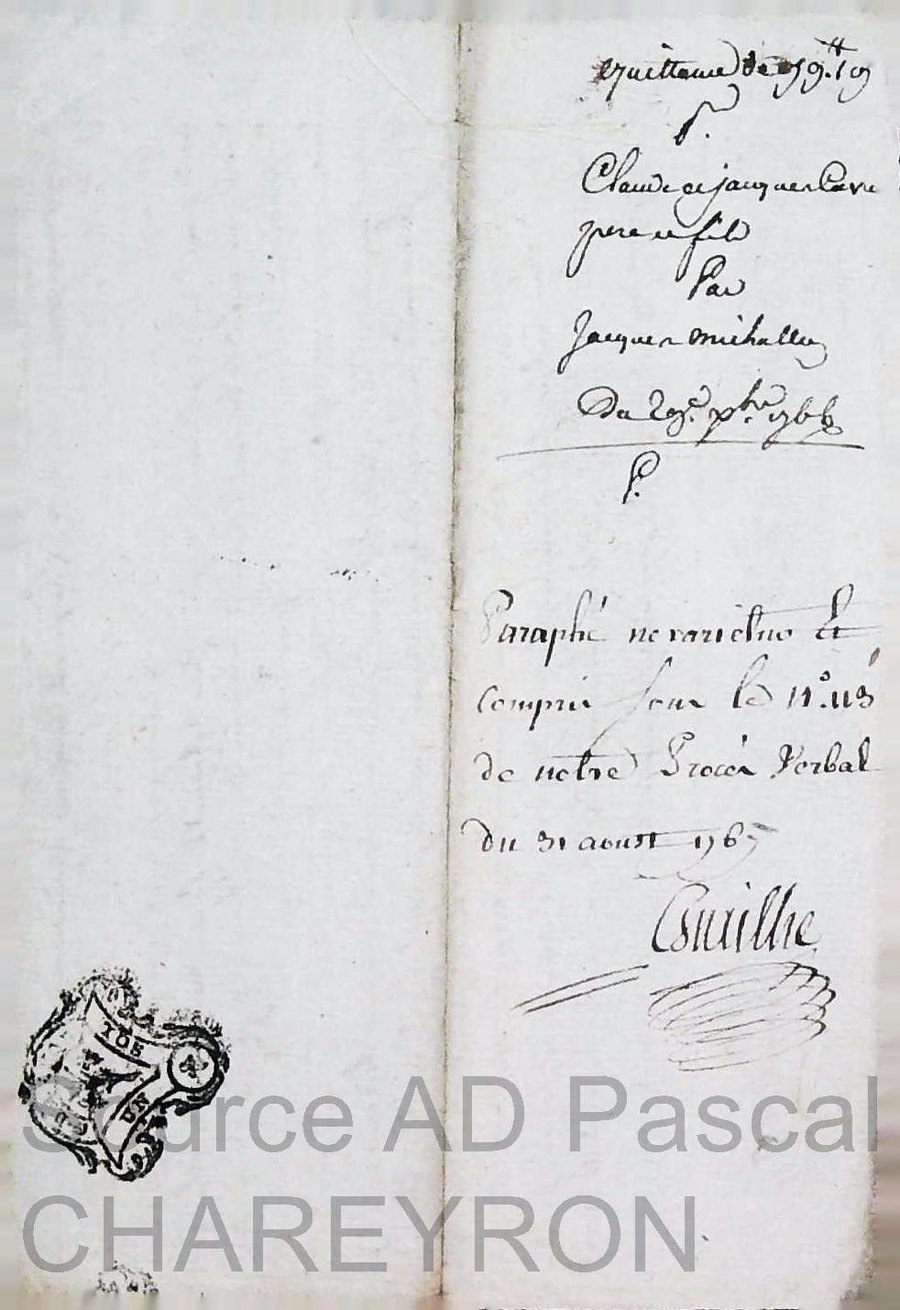 quittance de 99.tt 19
pr.
Claude et jacques
pere et fils
Par
Jacques michallez
Du 29e. xbre. 1766
P.
Paraphé ne varietur Et
compris sous le No. 113
de notre Procés Verbal
du 31 aoust 1767
Source AD Pascal
CHAREYRON